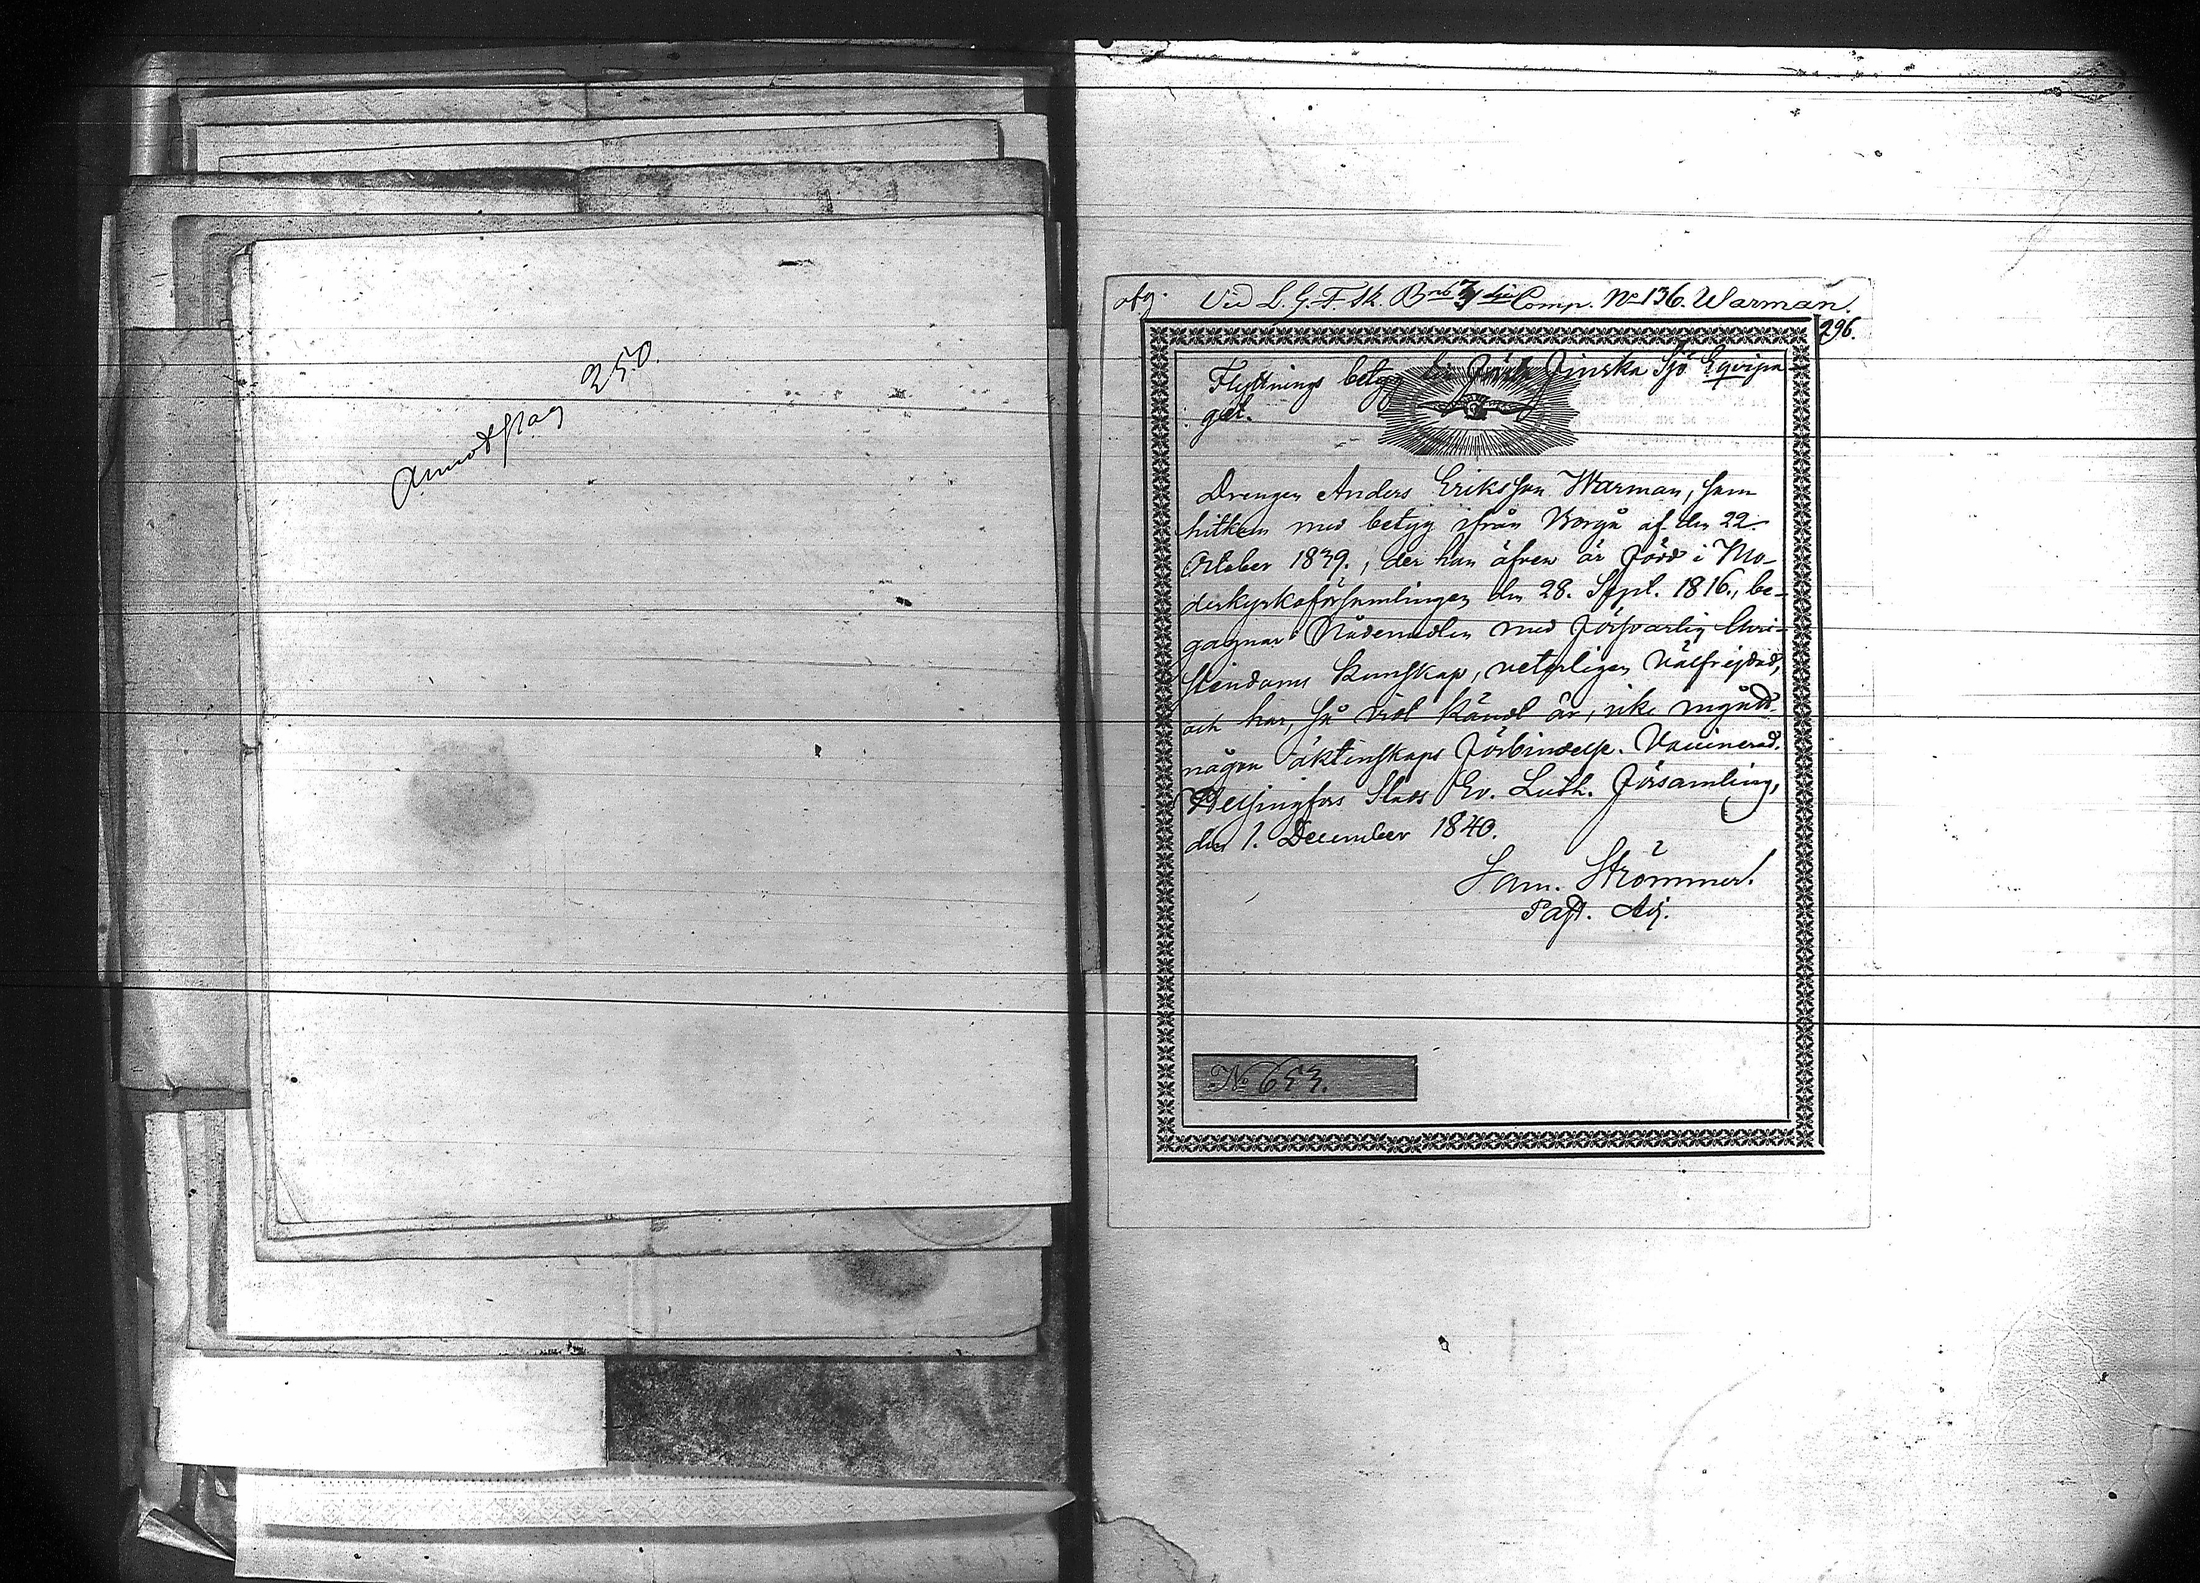 250.
afg. Vid L. G. F. Sk. B. Comp. No 136. Warman.
296.
Flyttnings betyg till Förste Finska Sjö Eqvipa-
get.
Drengen Anders Ericksson Warman, som
hitkom med betyg ifrån Borgå af den 22
October 1839., der han äfven är född i Mo-
derkyrkoförsamlingen den 28. Sept. 1816., be-
gagnar Nådemedlen med försvarlig Chri-
stendoms Kunskap, veterligen välfrejdad,
och har, så vidt kändt är, icke ingådt
någon äktenskaps förbindelse. Vaccinerad.
Helsingfors Stads Ev. Luth. Församling,
den 1. December 1840.
Sam. Strömmer.
Past. Adj.
No 653.